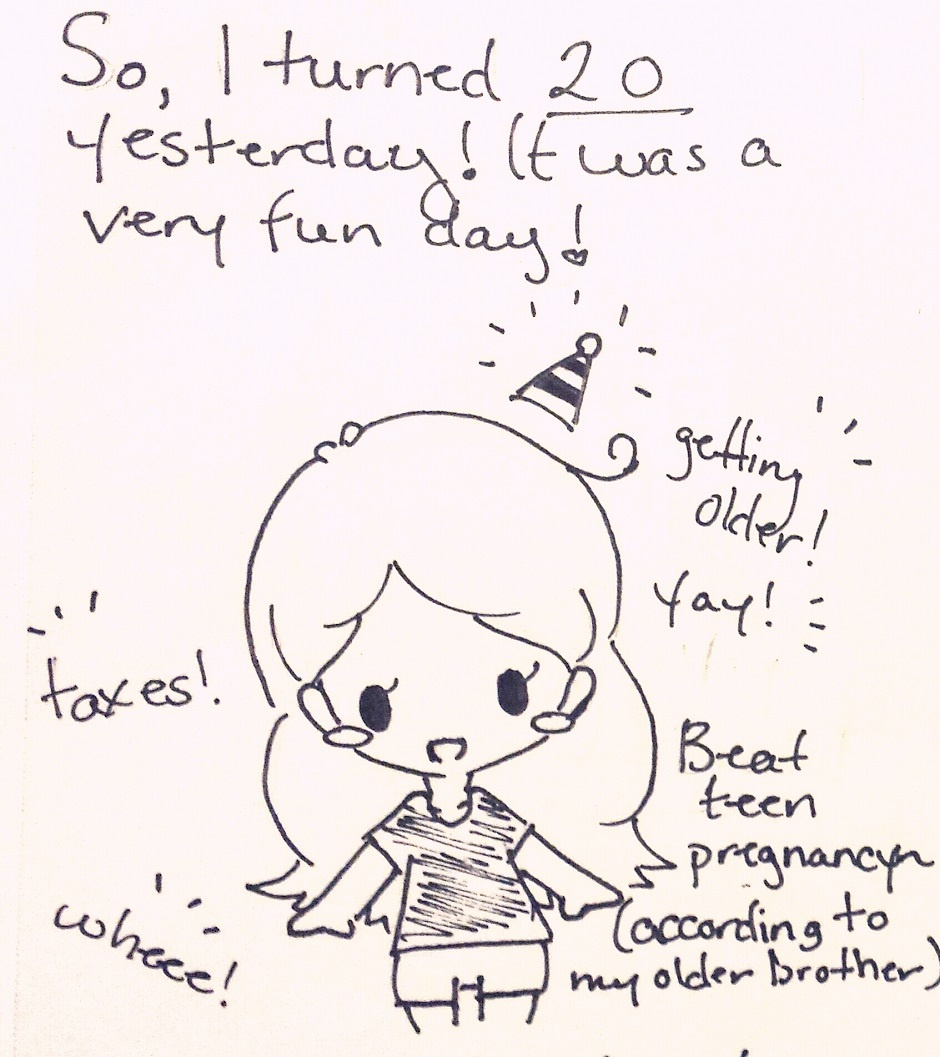 So, I turned 20
yesterday! It was a
very fun day!
getting
older!
Yay!
taxes!
Beat
teen
pregnancy
(according to
my older brother)
wheee!